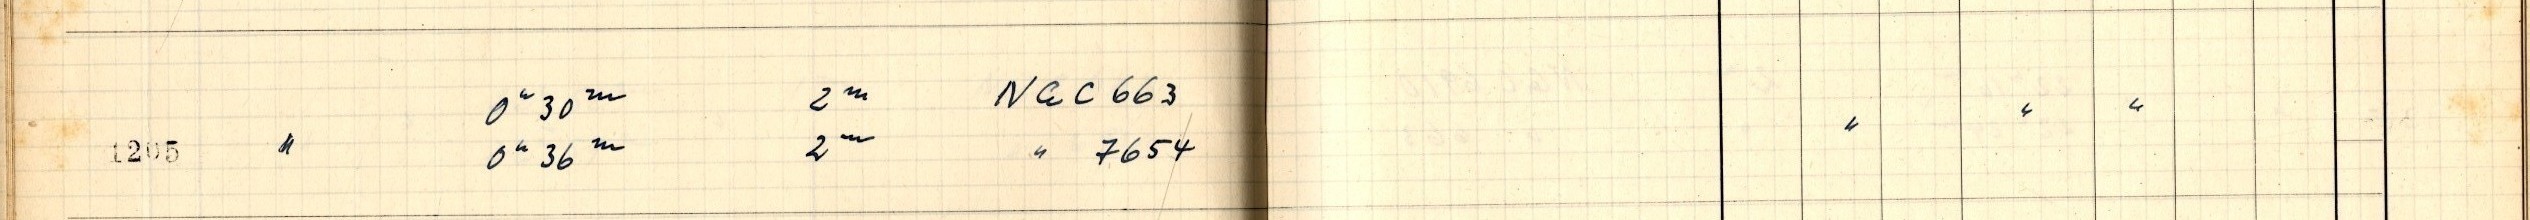 0ʰ 30ᵐ 2ᵐ NGC 663 " " "
1205 " 0ʰ 36ᵐ 2ᵐ " 7654